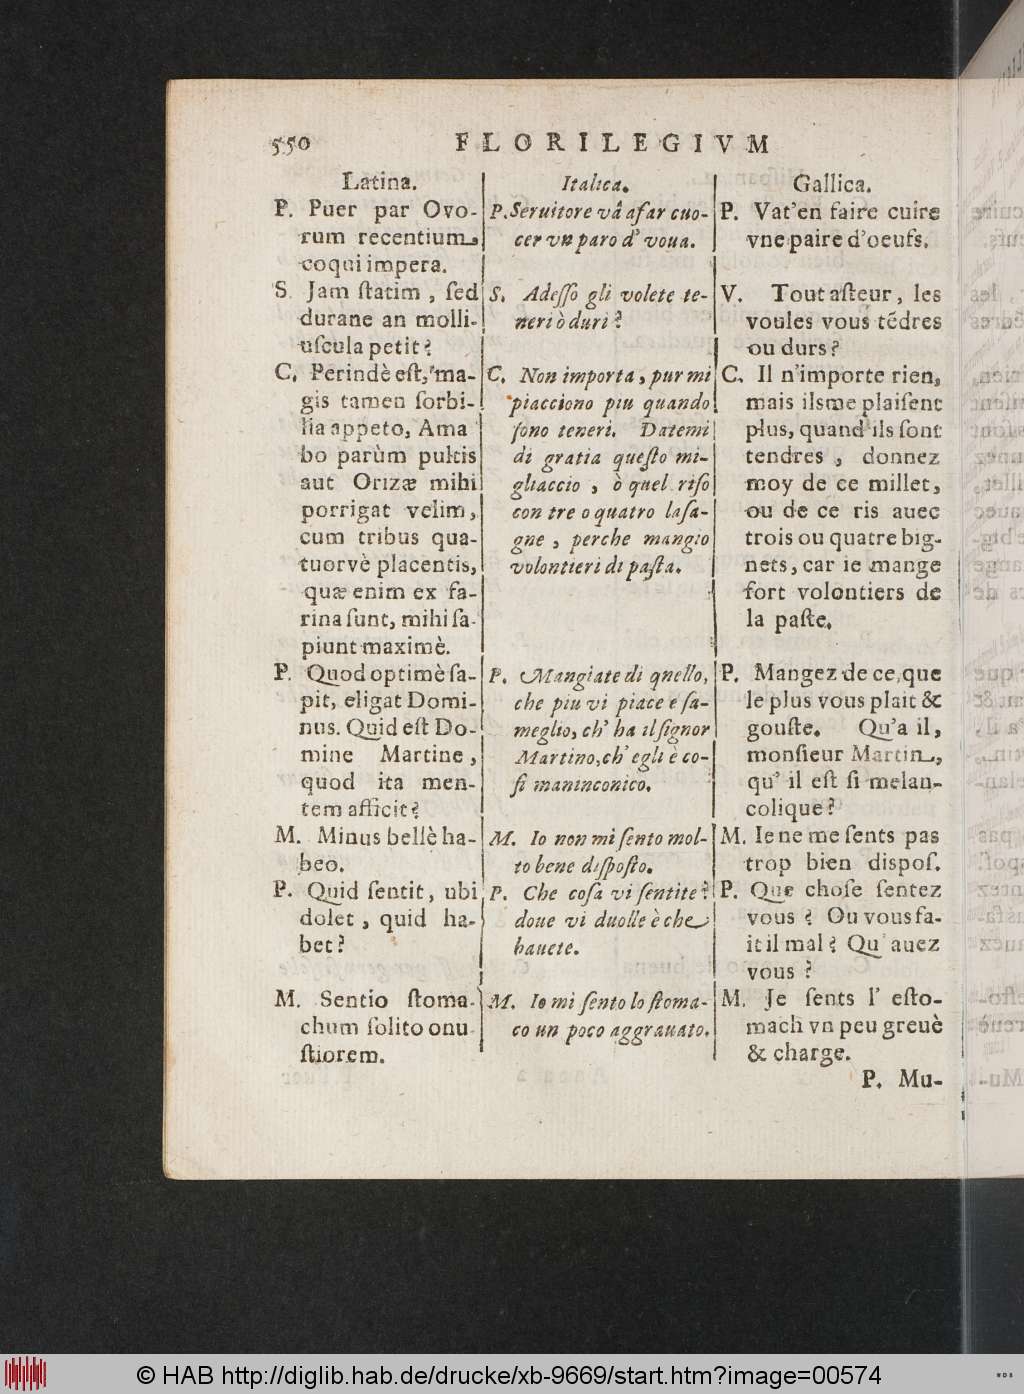 550 FLORILEGIVM
Latina.
P. Puer par Ovo-
rum recentium,
coqui impera.
S. Jam ſtatim, ſed
durane an molli-
uſcula petit?
C. Perindè eſt, ma-
gis tamen ſorbi-
lia appeto, Ama
bo parùm pultis
aut Orizæ mihi
porrigat velim,
cum tribus qua-
tuorvè placentis,
quæ enim ex fa-
rina ſunt, mihi ſa-
piunt maximè.
P. Quod optimè ſa-
pit, eligat Domi-
nus. Quid eſt Do-
mine Martine,
quod ita men-
tem afficit?
M. Minus bellè ha-
beo.
P. Quid ſentit, ubi
dolet, quid ha-
bet?
M. Sentio ſtoma-
chum ſolito onu
ſtiorem.
Italica.
P. Seruitore vâ a far cuo-
cer vn paro d' voua.
S. Adeſſo gli volete te-
neri ò duri?
C. Non importa, pur mi
piacciono piu quando
ſono teneri. Datemi
di gratia queſto mi-
gliaccio, ò quel riſo
con tre o quatro laſa-
gne, perche mangio
volontieri di paſta.
P. Mangiate di qnello,
che piu vi piace e ſa-
meglio, ch' ha il ſignor
Martino, ch' egli è co-
ſi maninconico.
M. Io non mi ſento mol-
to bene diſpoſto.
P. Che coſa vi ſentite?
doue vi duolle è che
hauete.
M. Io mi ſento lo ſtoma-
co un poco aggrauato.
Gallica.
P. Vat'en faire cuire
vne paire d'oeufs.
V. Tout aſteur, les
voules vous tẽdres
ou durs?
C. Il n'importe rien,
mais ils me plaiſent
plus, quand ils ſont
tendres, donnez
moy de ce millet,
ou de ce ris auec
trois ou quatre big-
nets, car ie mange
fort volontiers de
la paſte.
P. Mangez de ce, que
le plus vous plait &
gouſte. Qu'a il,
monſieur Martin,
qu' il eſt ſi melan-
colique?
M. Ie ne me ſents pas
trop bien dispoſ.
P. Que choſe ſentez
vous? Ou vous fa-
it il mal? Qu' auez
vous?
M. Je ſents l' eſto-
mach vn peu greuè
& charge.
P. Mu-
© HAB http://diglib.hab.de/drucke/xb-9669/start.htm?image=00574